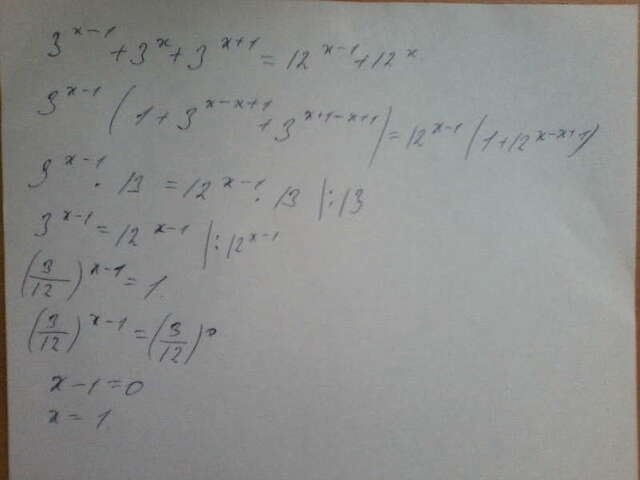 3^{x-1} + 3^x + 3^{x+1} = 12^{x-1} + 12^x
3^{x-1} (1 + 3^{x-x+1} + 3^{x+1-x+1}) = 12^{x-1} (1 + 12^{x-x+1})
3^{x-1} · 13 = 12^{x-1} · 13 | :13
3^{x-1} = 12^{x-1} | :12^{x-1}
(3/12)^{x-1} = 1
(3/12)^{x-1} = (3/12)^0
x - 1 = 0
x = 1